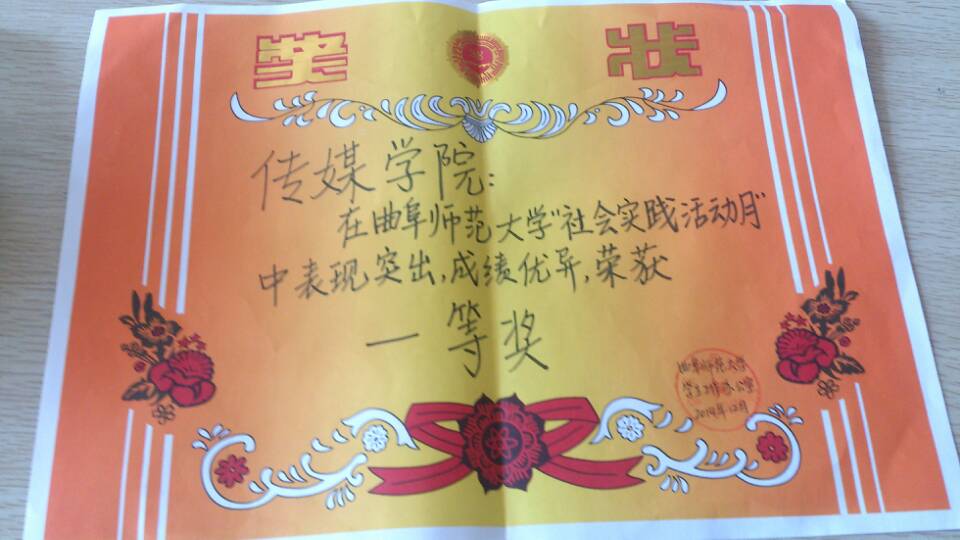 奖状
传媒学院：
在曲阜师范大学"社会实践活动月"
中表现突出，成绩优异，荣获
一等奖
曲阜师范大学
学生工作办公室
2014年12月